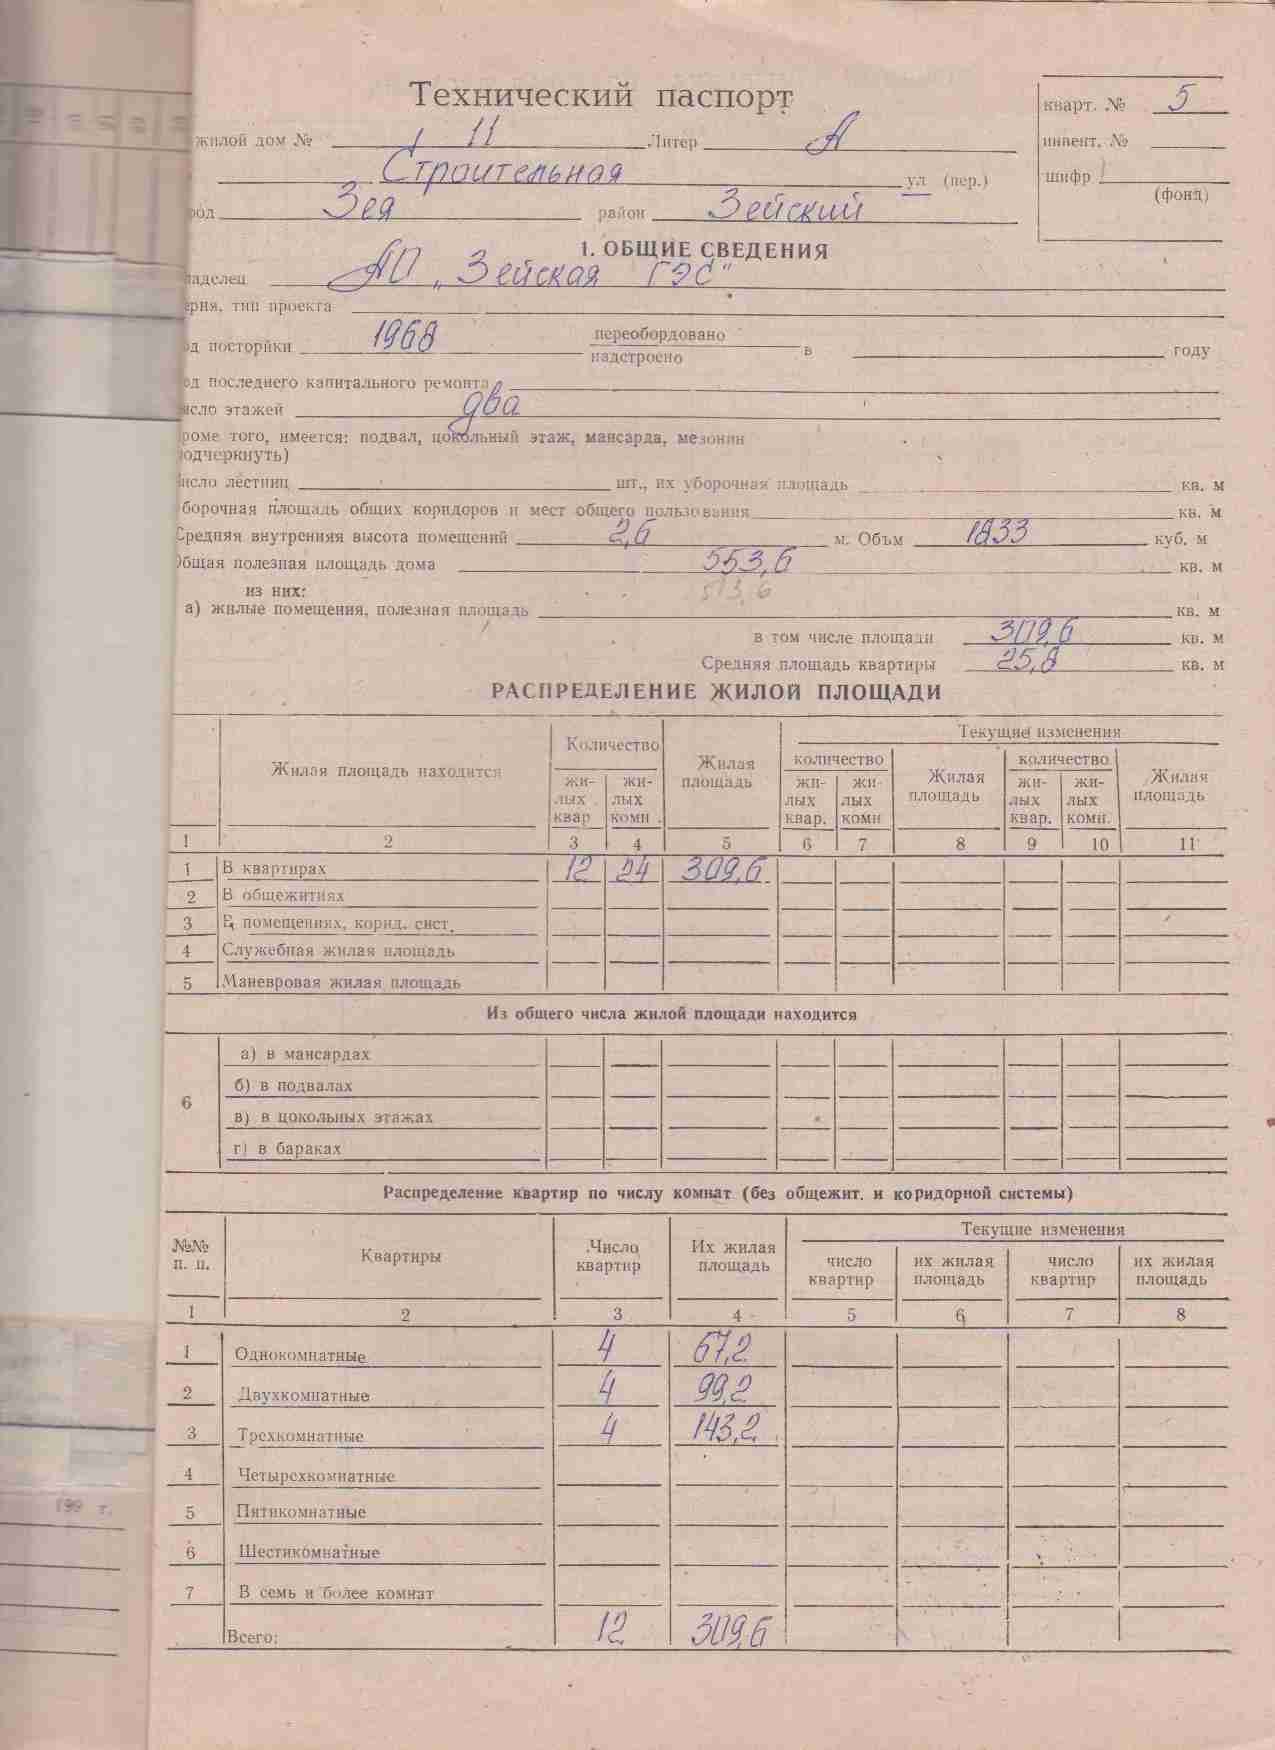 Технический паспорт
кварт. № 5
жилой дом № 11 Литер А
инвент. №
Строительная ул (пер.)
шифр
(фонд)
род Зея район Зейский
1. ОБЩИЕ СВЕДЕНИЯ
ладелец АО „Зейская ГЭС"
ерия, тип проекта
од посторйки 1968 переобордовано
надстроено в году
од последнего капитального ремонта
исло этажей два
роме того, имеется: подвал, цокольный этаж, мансарда, мезонин
одчеркнуть)
исло лестниц шт., их уборочная площадь кв. м
борочная площадь общих коридоров и мест общего пользования кв. м
Средняя внутренняя высота помещений 2,6 м. Объм 1833 куб. м
Общая полезная площадь дома 553,6 кв. м
из них: 513,6
а) жилые помещения, полезная площадь кв. м
в том числе площади 309,6 кв. м
Средняя площадь квартиры 25,8 кв. м
РАСПРЕДЕЛЕНИЕ ЖИЛОЙ ПЛОЩАДИ
Жилая площадь находится Количество Жилая площадь Текущие изменения
количество Жилая площадь количество Жилая площадь
жи- жи- жи- жи- жи- жи-
лых лых лых лых лых лых
квар комн. квар. комн квар. комн.
1 2 3 4 5 6 7 8 9 10 11
1 В квартирах 12 24 309,6
2 В общежитиях
3 В помещениях, корид. сист.
4 Служебная жилая площадь
5 Маневровая жилая площадь
Из общего числа жилой площади находится
6 а) в мансардах
б) в подвалах
в) в цокольных этажах
г) в бараках
Распределение квартир по числу комнат (без общежит. и коридорной системы)
№№ п. п. Квартиры Число квартир Их жилая площадь Текущие изменения
число квартир их жилая площадь число квартир их жилая площадь
1 2 3 4 5 6 7 8
1 Однокомнатные 4 67,2
2 Двухкомнатные 4 99,2
3 Трехкомнатные 4 143,2
4 Четырехкомнатные
5 Пятикомнатные
6 Шестикомнатные
7 В семь и более комнат
Всего: 12 309,6
199 г.